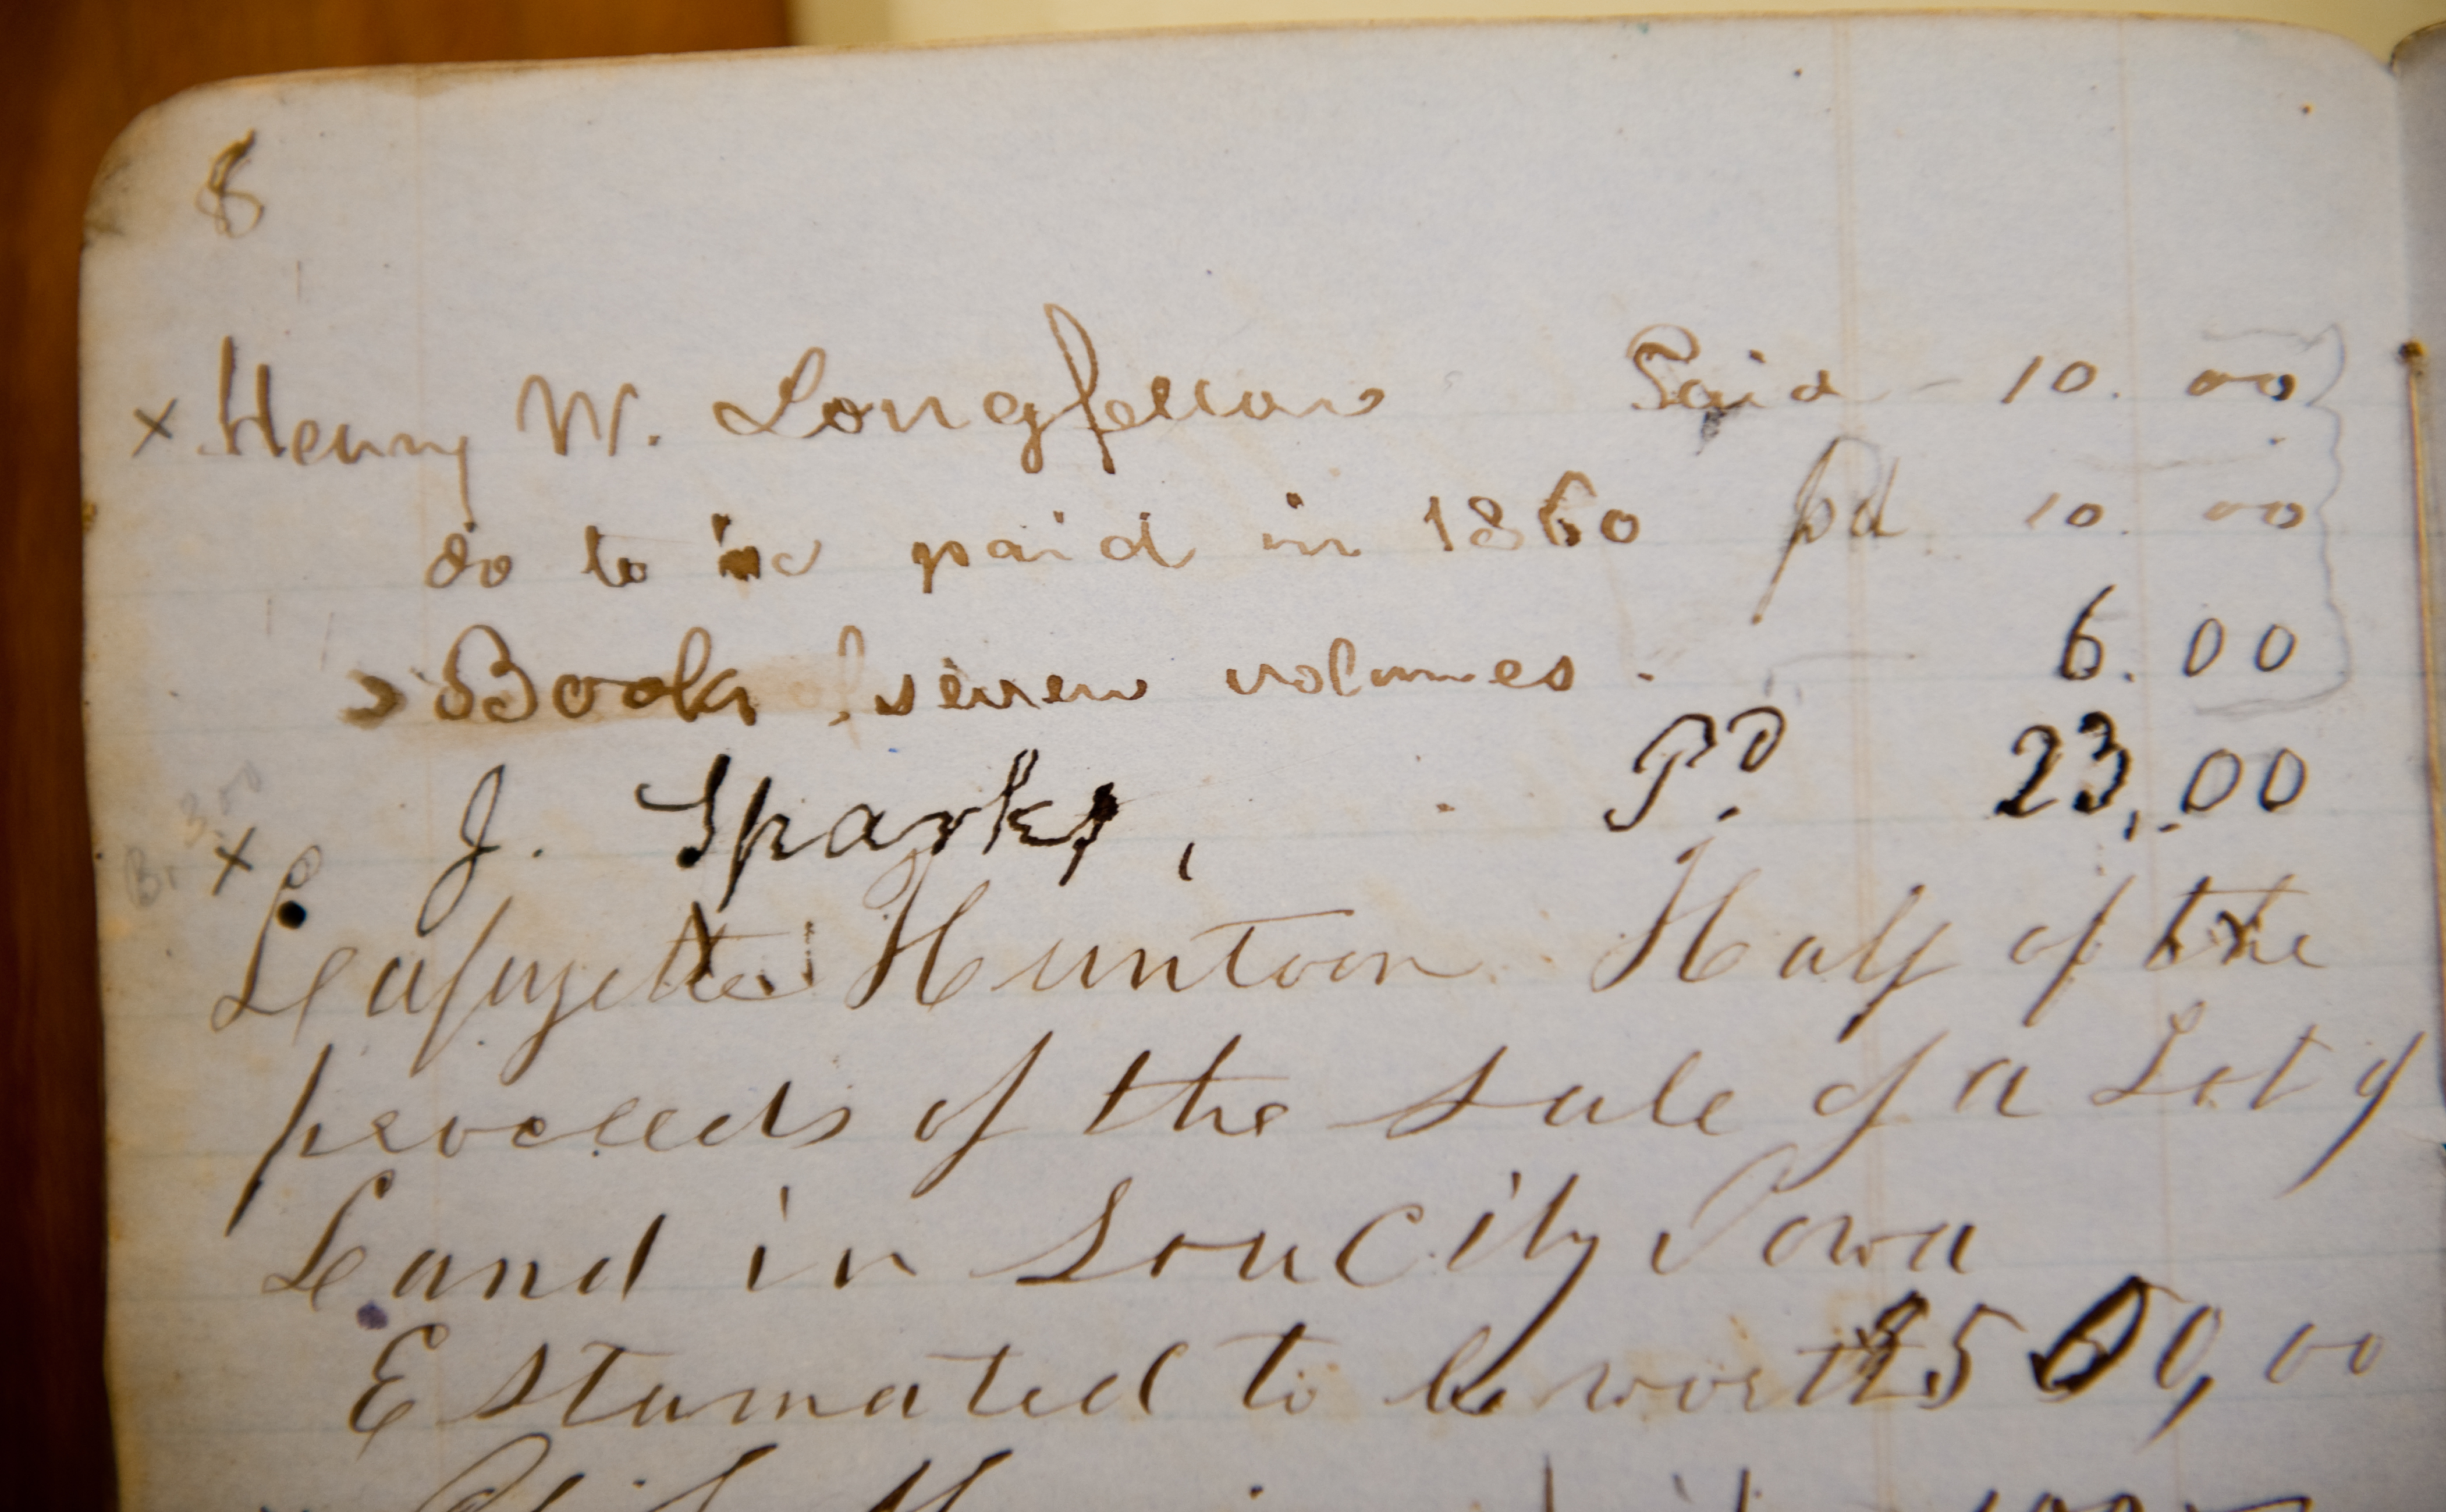 8
x Henry W. Longfellow Paid - 10.00
do to be paid in 1860 pd 10.00
Books, seven volumes. 6.00
J. Sparks, Pd. 23,.00
3.00
x Lafayette Huntoon Half of the
proceeds of the sale of a Lot of
Land in Sou City Iowa
Estamated to be worth $500,00